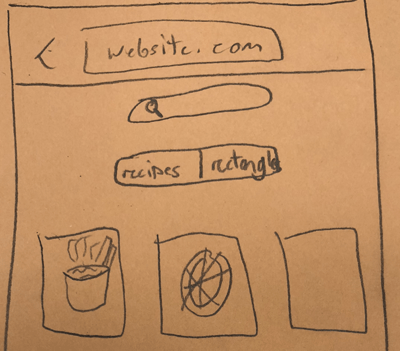 website.com
recipes rectangle